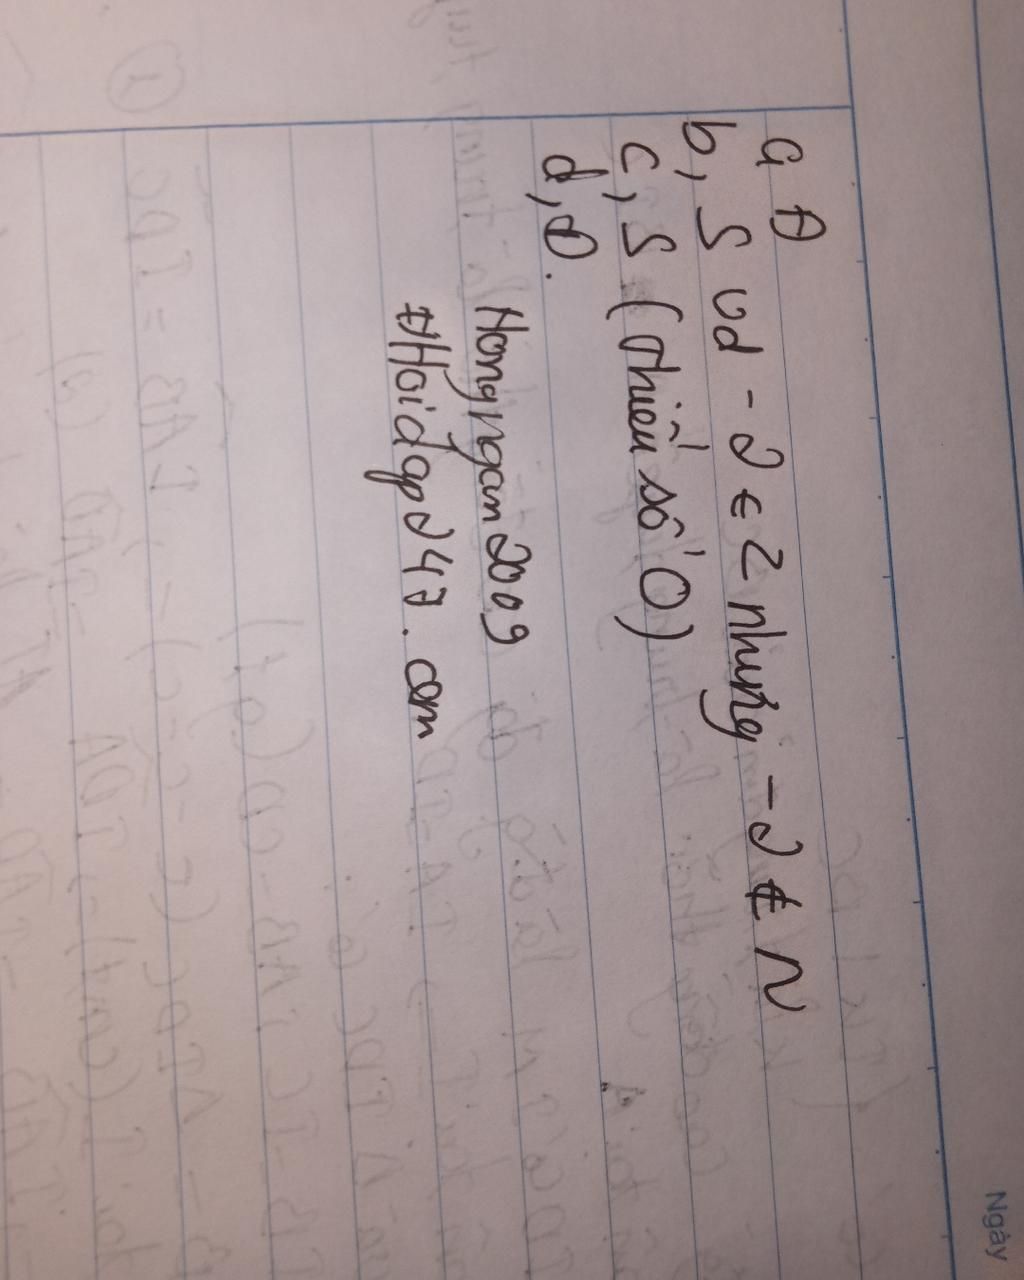 a, Đ
b, S vd -2 ∈ Z nhưng -2 ∉ N
c, S (Thiếu số 0)
d, Đ.
Hongngan2009
#Hoidap247.com
Ngày